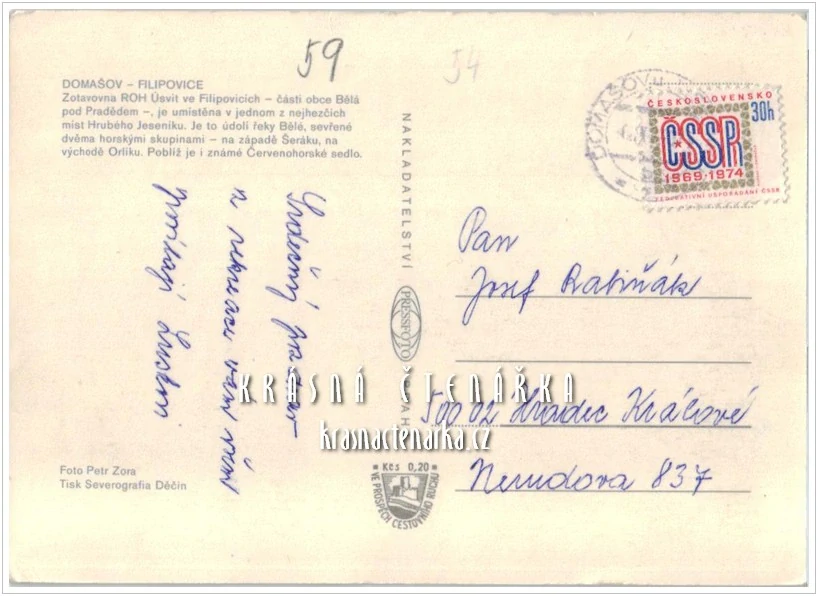 59
54
DOMAŠOV – FILIPOVICE
Zotavovna ROH Úsvit ve Filipovicích – části obce Bělá
pod Pradědem –, je umístěna v jednom z nejhezčích
míst Hrubého Jeseníku. Je to údolí řeky Bělé, sevřené
dvěma horskými skupinami – na západě Šeráku, na
východě Orlíku. Poblíž je i známé Červenohorské sedlo.
Srdečný pozdrav
z rekreace vám
NAKLADATELSTVÍ
PRESSFOTO
DOMAŠOV u
ČESKOSLOVENSKO
30h
ČSSR
1969·1974
FEDERATIVNÍ USPOŘÁDÁNÍ ČSSR
Pan
Josef
500 02 Hradec Králové
Nerudova 837
KRÁSNÁ ČTENÁŘKA
krasnactenarka.cz
Kčs 0,20
VE PROSPĚCH CESTOVNÍHO RUCHU
Foto Petr Zora
Tisk Severografia Děčín